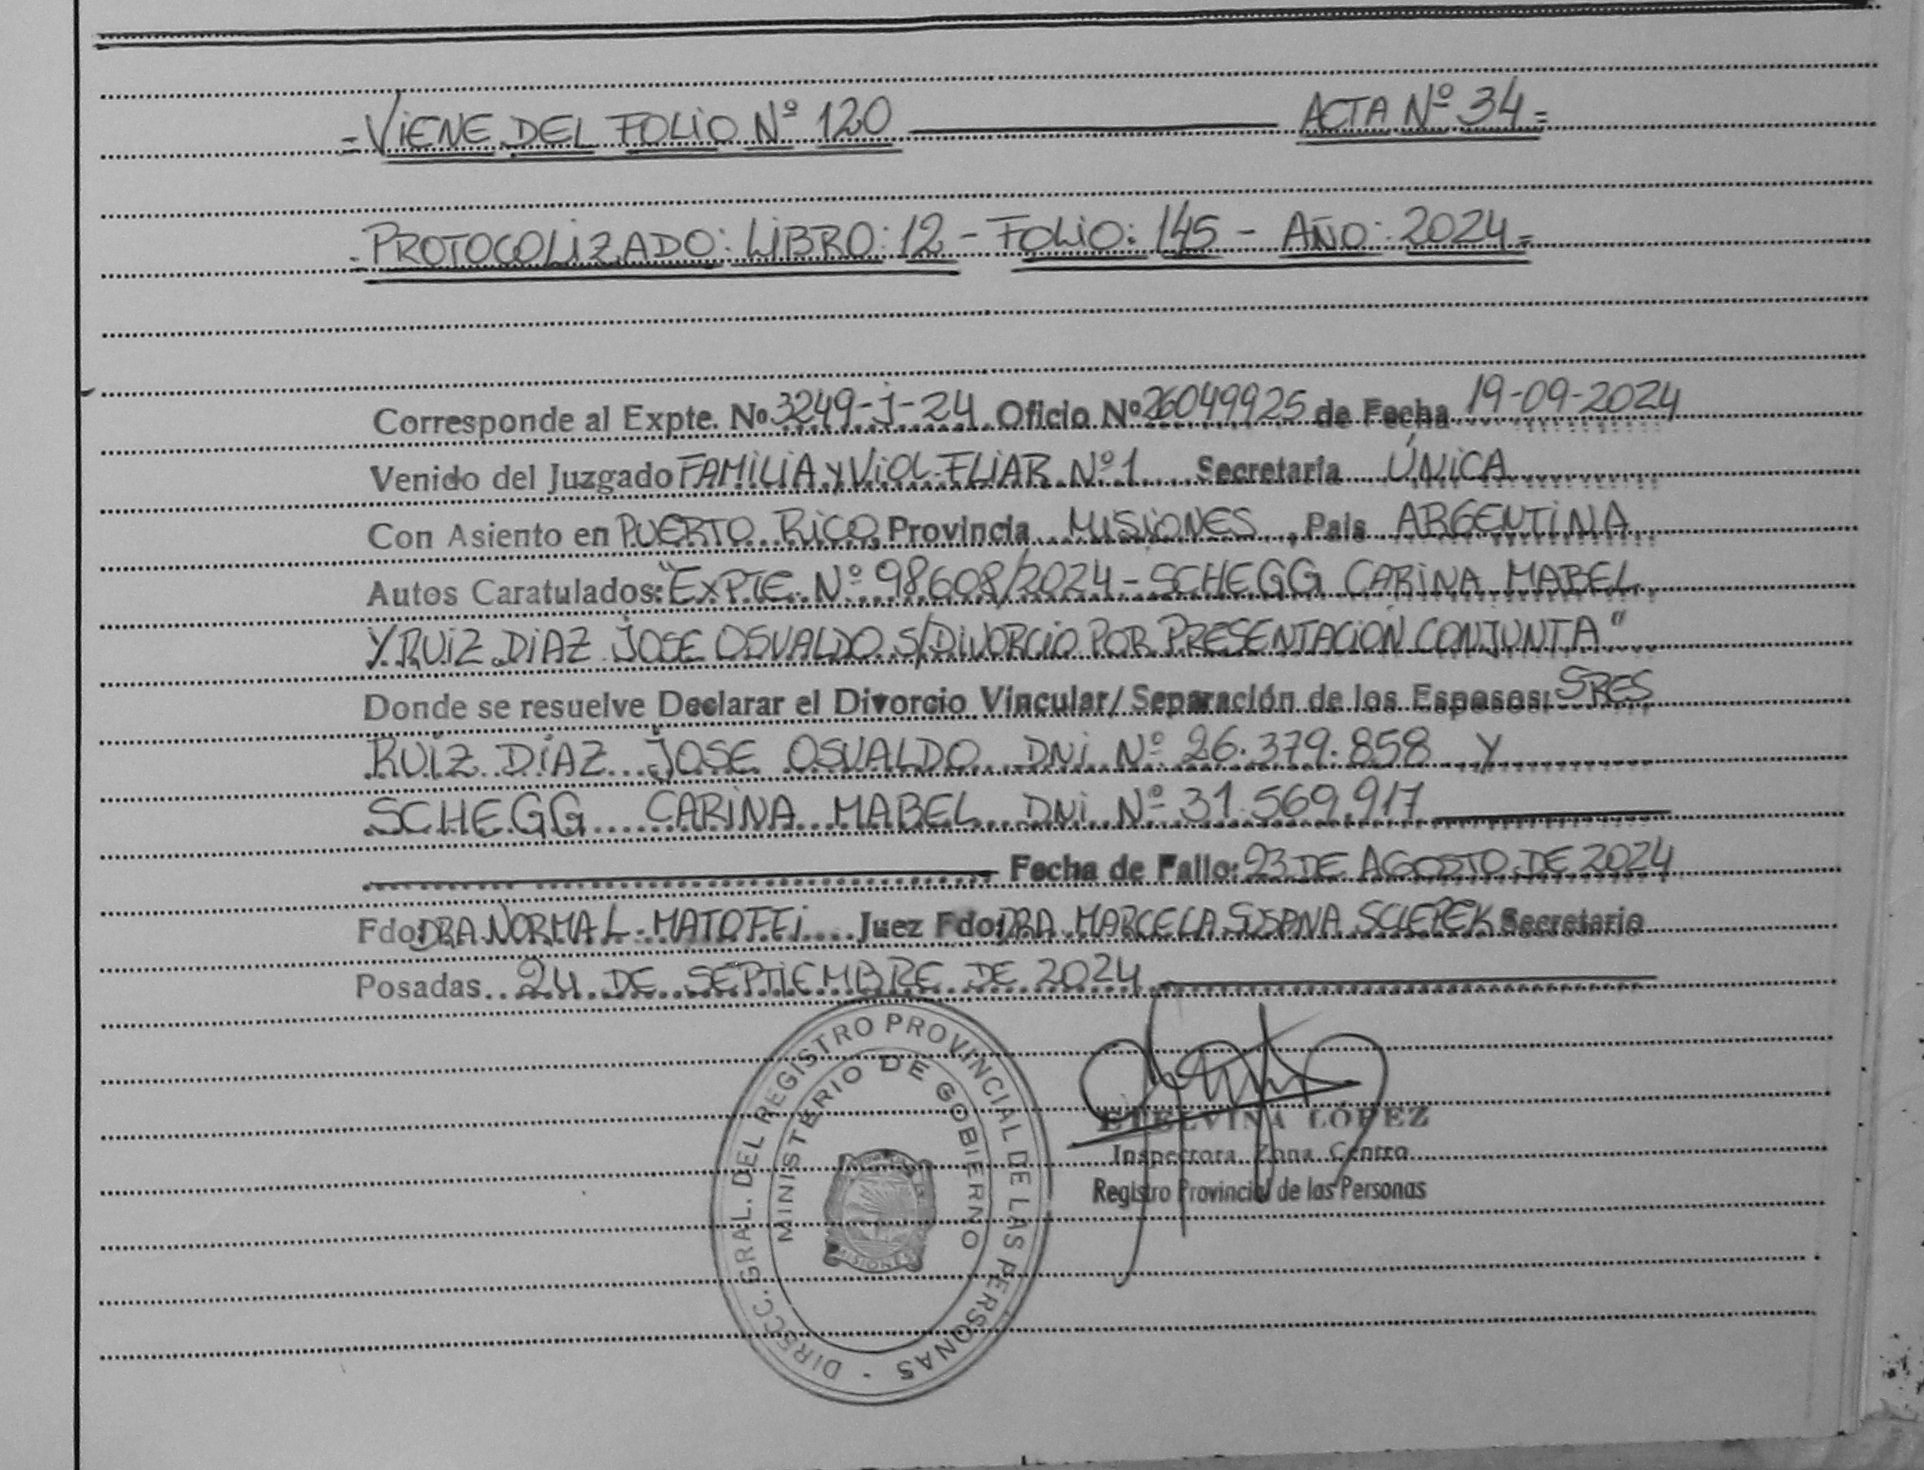 =VIENE DEL FOLIO Nº 120 ACTA Nº 34=
-PROTOCOLIZADO: LIBRO: 12 - FOLIO: 145 - AÑO: 2024=
Corresponde al Expte. Nº 3249-J-24 Oficio Nº 26049925 de Fecha 19-09-2024
Venido del Juzgado FAMILIA y VIOL. FLIAR Nº 1 Secretaría ÚNICA
Con Asiento en PUERTO RICO, Provincia MISIONES, País ARGENTINA
Autos Caratulados: "EXPTE. Nº 98608/2024 - SCHEGG CARINA MABEL
Y RUIZ DIAZ JOSE OSVALDO S/DIVORCIO POR PRESENTACION CONJUNTA"
Donde se resuelve Declarar el Divorcio Vincular/Separación de los Esposos: SRES
RUÍZ DÍAZ JOSE OSVALDO DNI Nº 26.379.858 Y
SCHEGG CARINA MABEL DNI Nº 31.569.917
Fecha de Fallo: 23 DE AGOSTO DE 2024
Fdo: DRA NORMA L. Juez Fdo: DRA. MARCELA SUSANA Secretario
Posadas 24 DE SEPTIEMBRE DE 2024
DIRECC. GRAL. DEL REGISTRO PROVINCIAL DE LAS PERSONAS -
MINISTERIO DE GOBIERNO
MISIONES
ETELVINA LÓPEZ
Inspectora Zona Centro
Registro Provincial de las Personas